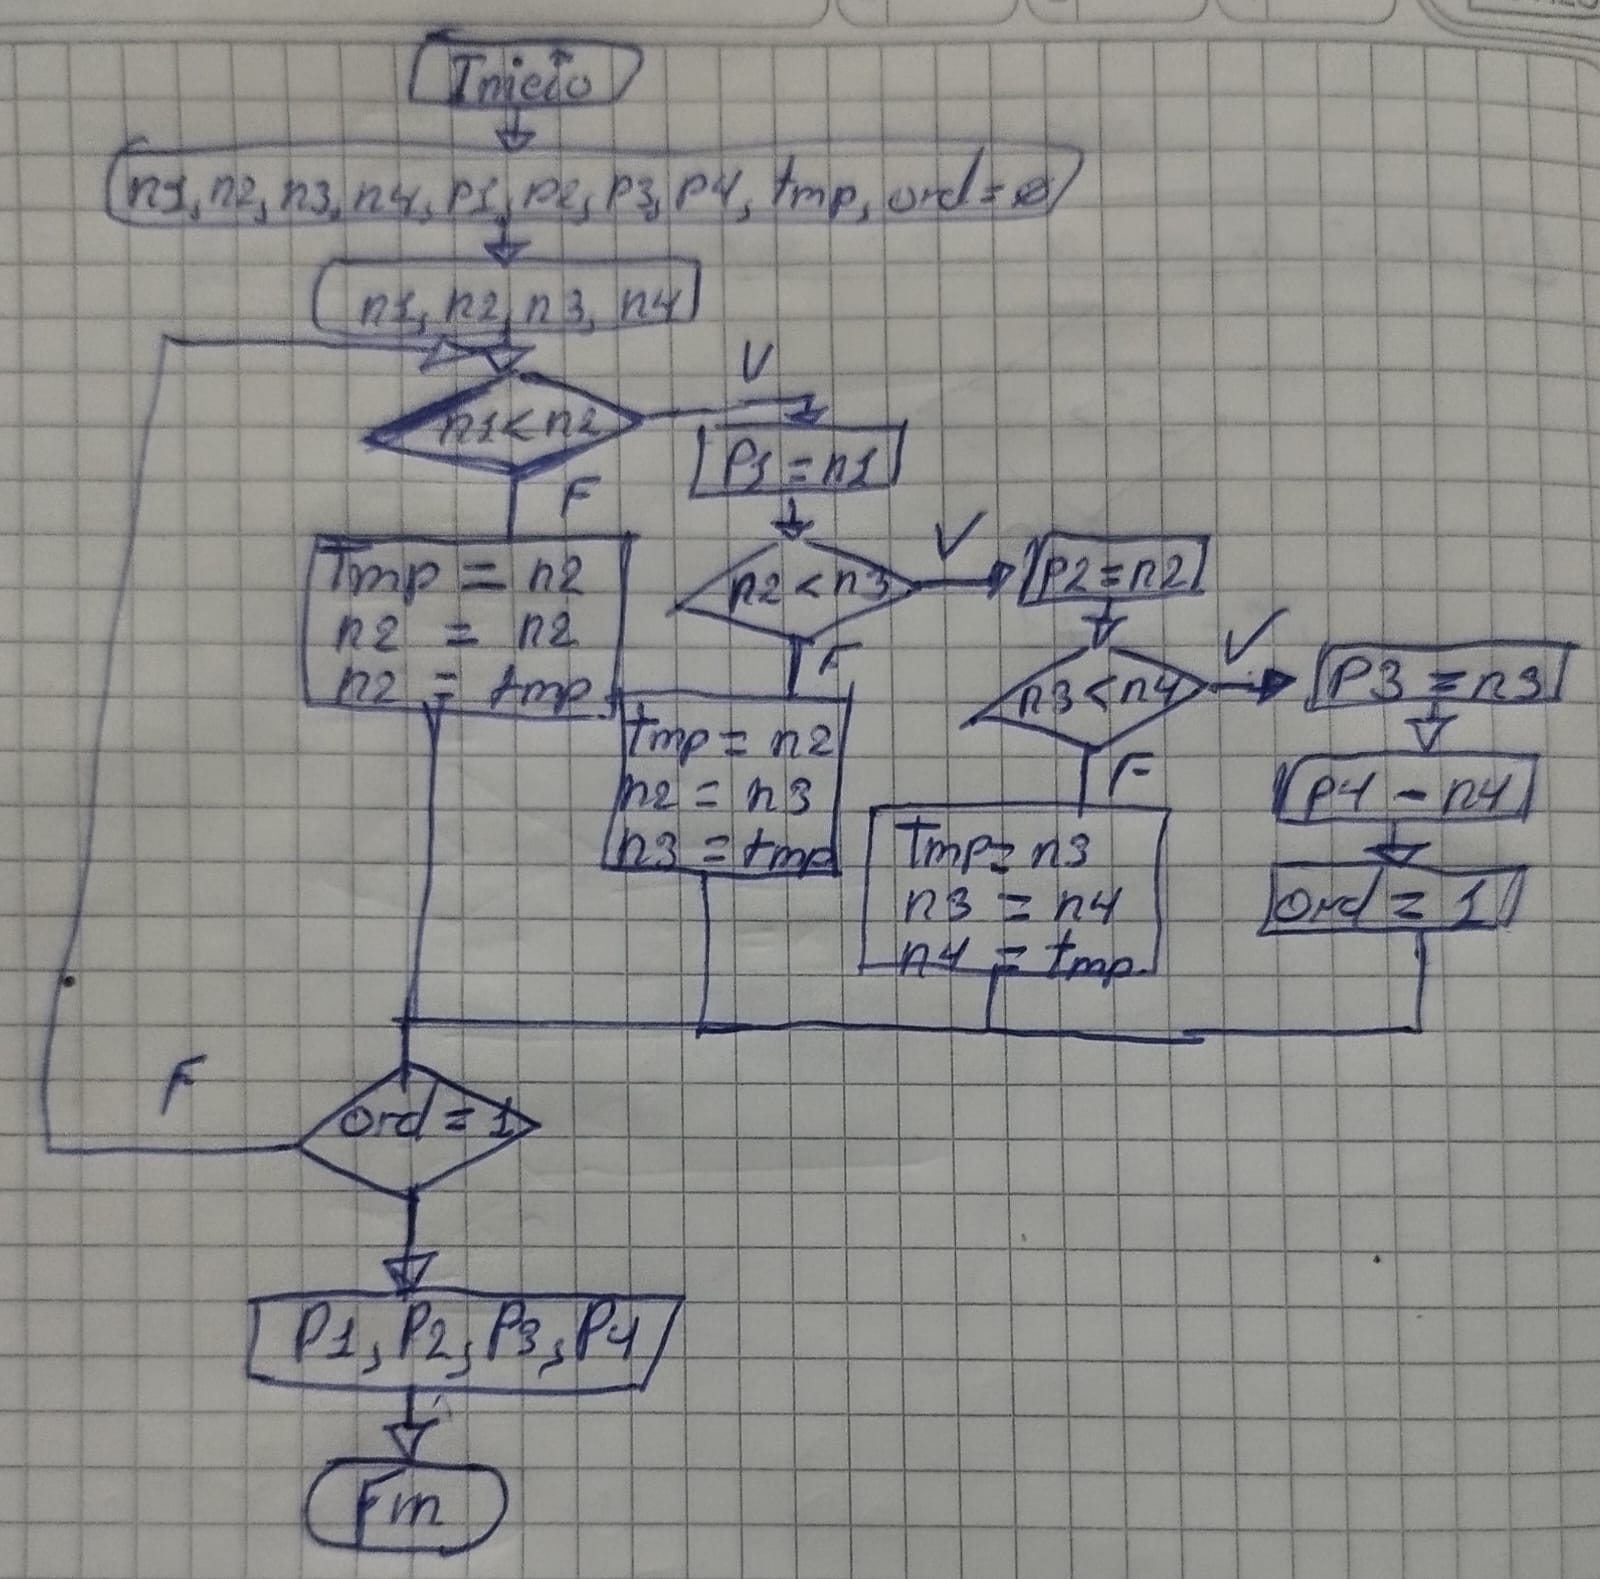 Inicio
n1, n2, n3, n4, p1, p2, p3, p4, tmp, ord=0
n1, n2, n3, n4
n1 < n2
V
F
P1 = n1
Tmp = n2
n2 = n2
n2 = tmp
n2 < n3
V
F
P2 = n2
tmp = n2
n2 = n3
n3 = tmp
n3 < n4
V
F
P3 = n3
P4 - n4
Ord = 1
Tmp = n3
n3 = n4
n4 = tmp
F
ord = 1
P1, P2, P3, P4
Fin